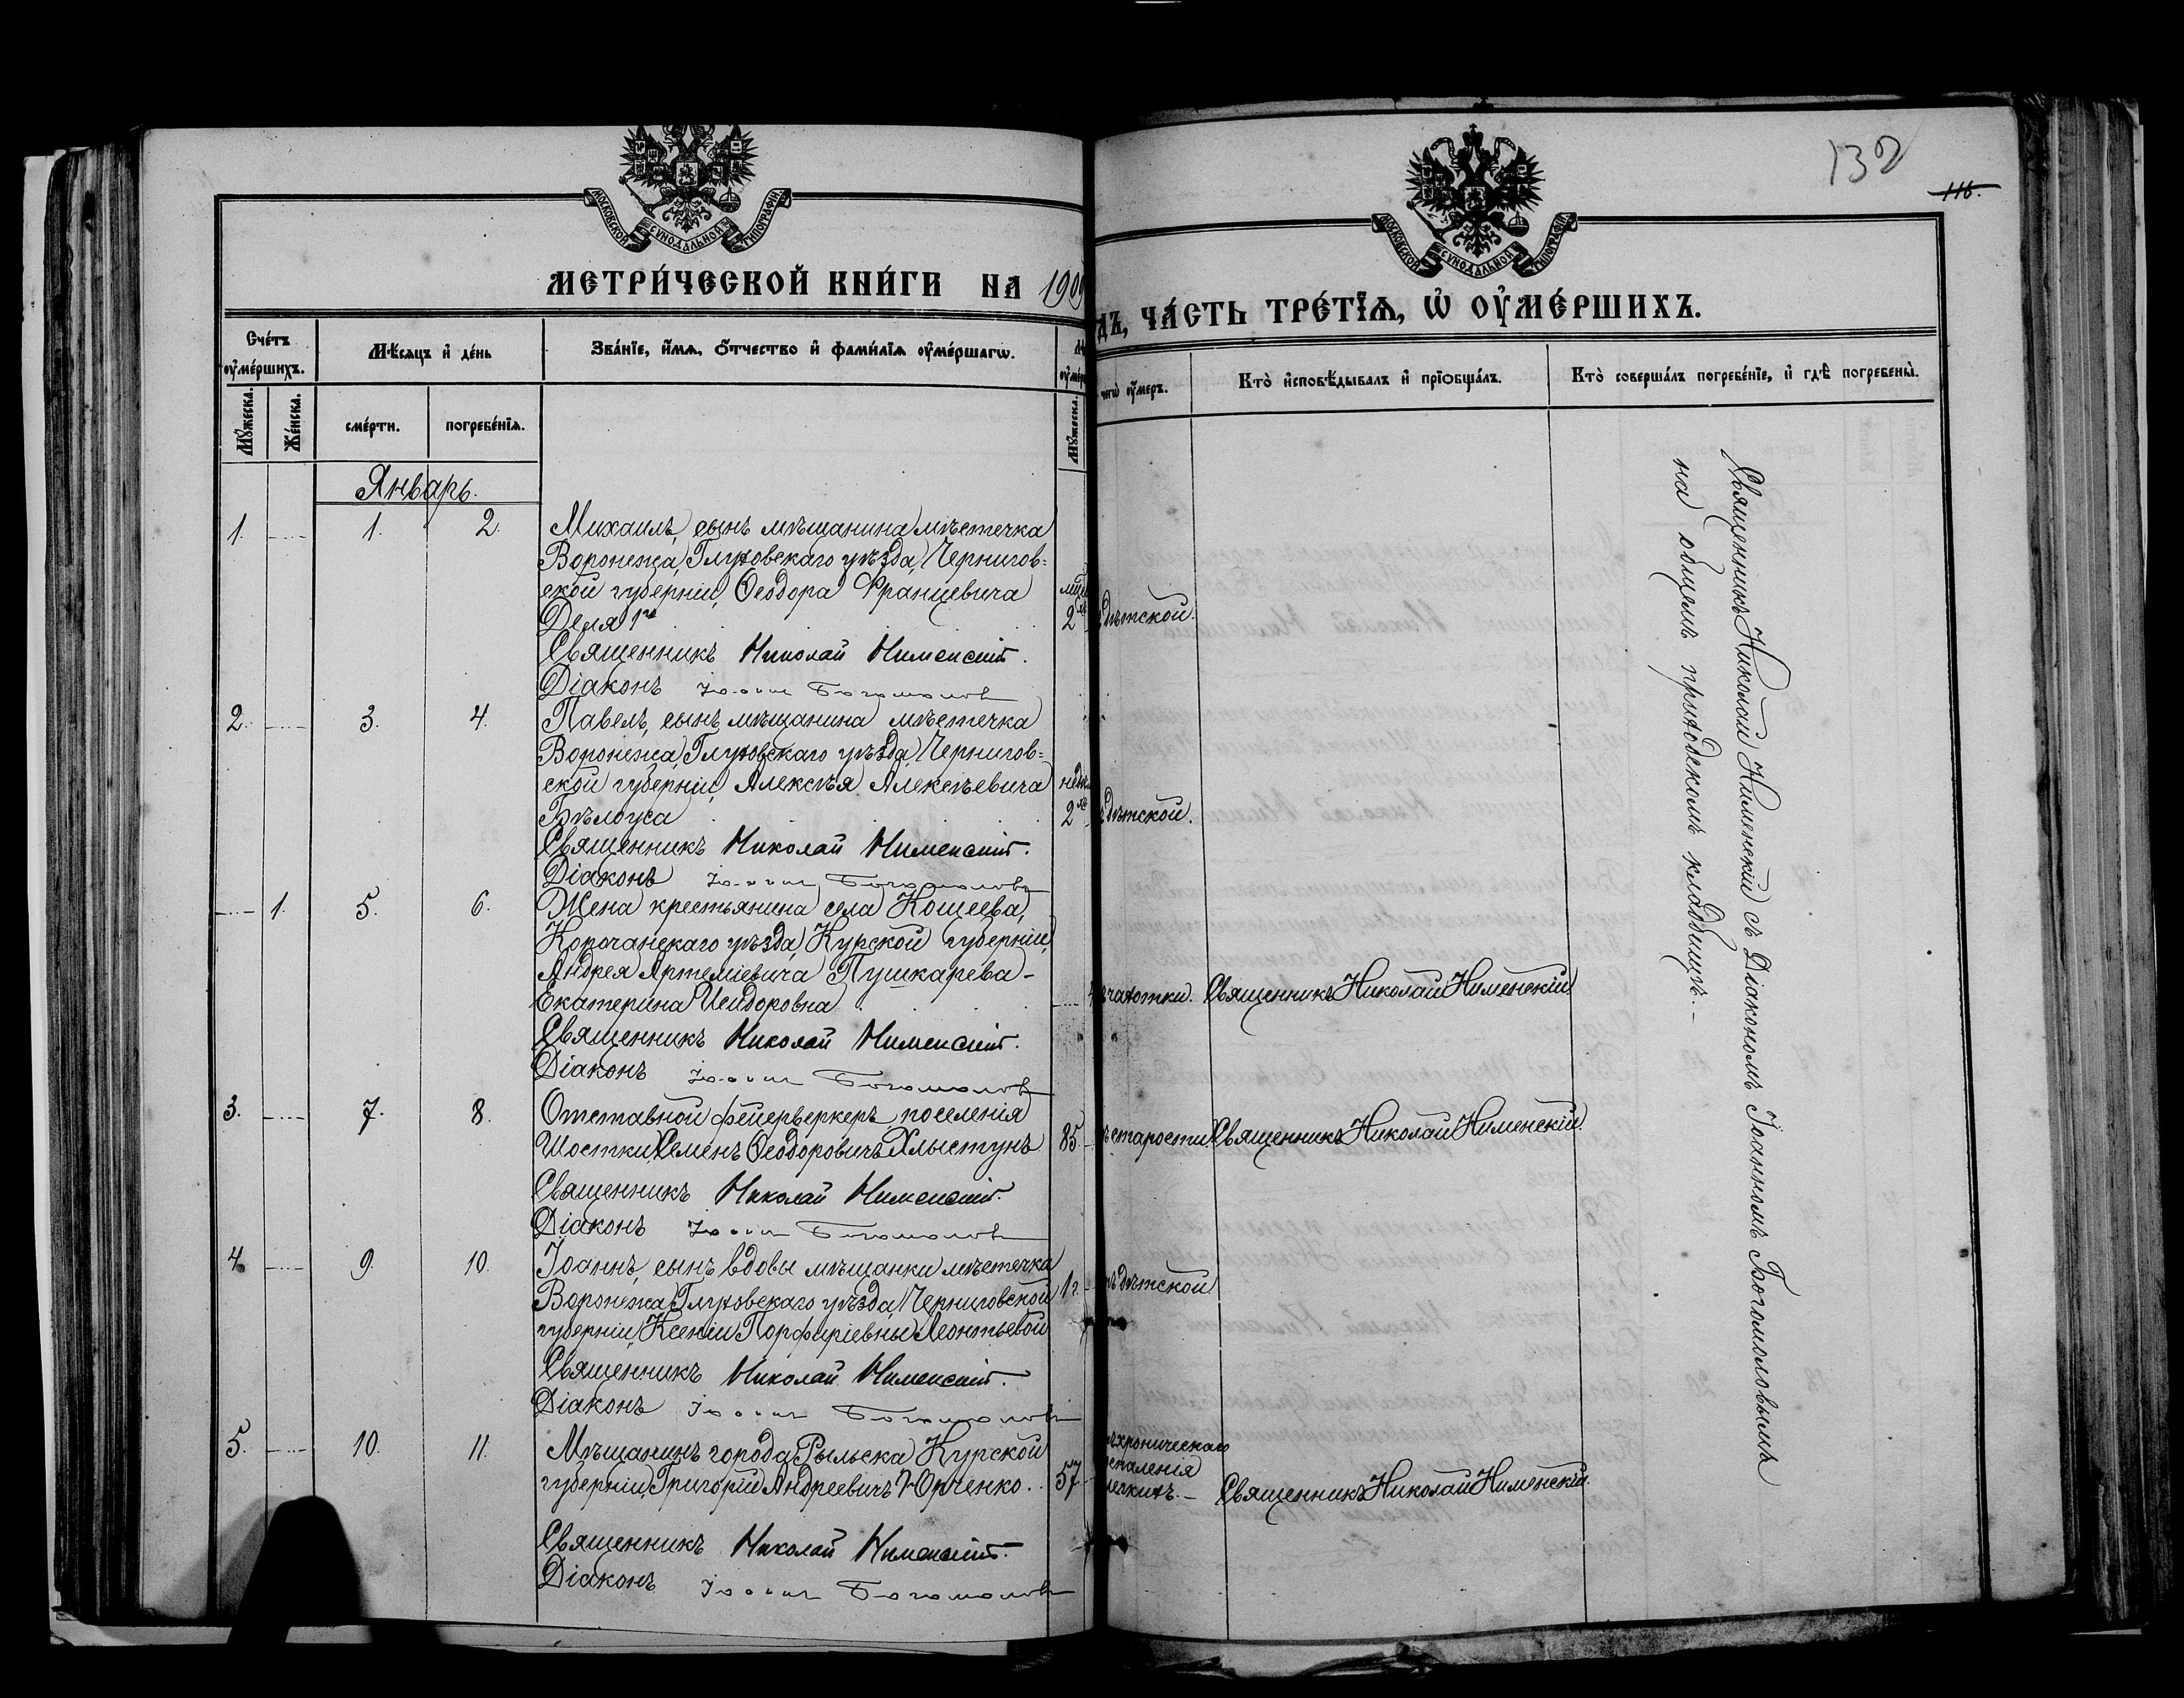 МОСКОВСКОЙ СѴНОДАЛЬНОЙ ТИПОГРАФІИ
МЕТРИ́ЧЕСКОЙ КНИ́ГИ НА 1909
Сче́тъ ᲂу҆ме́ршихъ.
Мѣ́сяцъ и҆ де́нь
Зва́нїе, и҆́мѧ, ѻ҆́тчество и҆ фами́лїѧ ᲂу҆ме́ршагѡ.
Мꙋ́жеска.
Же́нска.
сме́рти.
погребе́нїѧ.
Мꙋ́жеска.
Январь.
1. 1. 2. Михаилъ, сынъ мѣщанина мѣстечка
Воронежа, Глуховскаго уѣзда, Чернигов=
ской губерніи, Ѳеодора Францевича
Деля 1го 2
Священникъ Николай Нименскій.
Діаконъ Іоаннъ Богомоловъ
2. 3. 4. Павелъ, сынъ мѣщанина мѣстечка
Воронежа, Глуховскаго уѣзда, Чернигов=
ской губерніи, Алексѣя Алексѣевича
Бѣлоуса 2
Священникъ Николай Нименскій.
Діаконъ Іоаннъ Богомоловъ
1. 5. 6. Жена крестьянина села Кощеева,
Корочанскаго уѣзда, Курской губерніи,
Андрея Артеміевича Пушкарева -
Екатерина Исидоровна
Священникъ Николай Нименскій.
Діаконъ Іоаннъ Богомоловъ
3. 7. 8. Отставной фейерверкеръ поселенія
Шостки, Семенъ Ѳеодоровичъ Хлыстунъ 85
Священникъ Николай Нименскій.
Діаконъ Іоаннъ Богомоловъ
4. 9. 10. Іоаннъ, сынъ вдовы мѣщанки мѣстечка
Воронежа, Глуховскаго уѣзда, Черниговской 1г.
губерніи, Ксеніи Порфиріевны Леонтьевой
Священникъ Николай Нименскій.
Діаконъ Іоаннъ Богомоловъ
5. 10. 11. Мѣщанинъ города Рыльска, Курской
губерніи, Григорій Андреевичъ Юрченко. 57
Священникъ Николай Нименскій.
Діаконъ Іоаннъ Богомоловъ
132
116.
МОСКОВСКОЙ СѴНОДАЛЬНОЙ ТИПОГРАФІИ
дъ, ЧА́СТЬ ТРЕ́ТЇѦ, Ѡ҆ ОУ҆МЕ́РШИХЪ.
чегѡ̀ ᲂу҆́меръ.
Кто̀ и҆сповѣ́дывалъ и҆ прїѻбща́лъ.
Кто̀ соверша́лъ погребе́нїе, и҆ гдѣ̀ погребены̀.
дѣтской.
дѣтской.
чахотки. Священникъ Николай Нименскій
старости. Священникъ Николай Нименскій
дѣтской
хроническаго
паленія
легкихъ. - Священникъ Николай Нименскій
Священникъ Николай Нименскій съ Діакономъ Іоанномъ Богомоловымъ
на общемъ приходскомъ кладбищѣ. -